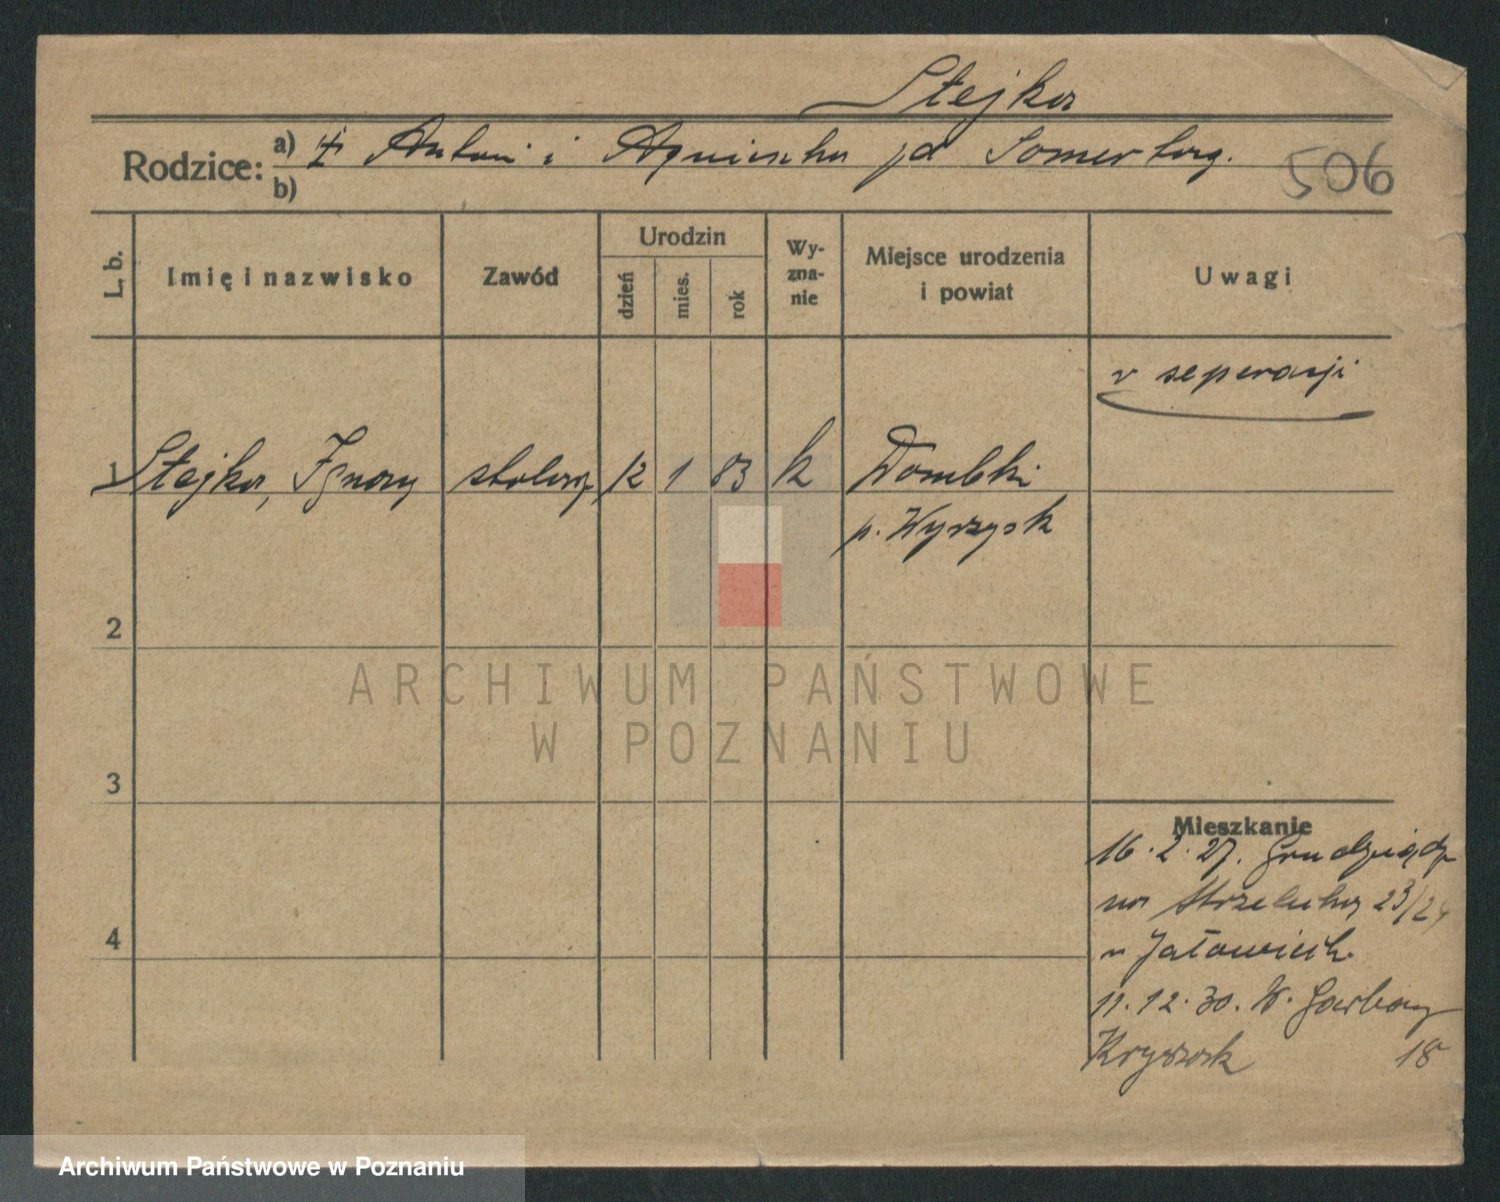 Stejka
Rodzice: a) ‡ Antoni i Agnieszka jd Somerberg.
b)
506
L. b.
Imię i nazwisko
Zawód
Urodzin
dzień
mies.
rok
Wy-
zna-
nie
Miejsce urodzenia
i powiat
Uwagi
w seperacji
1 Stejka, Ignacy stolarz 12 1 83 k Dombki
p. Wyrzysk
2
3
4
Mieszkanie
16.2.27. Grudziądz
na Strzelecka 23/24
u Jatowieck.
11.12.30. W. Garbary
18
ARCHIWUM PAŃSTWOWE
W POZNANIU
Archiwum Państwowe w Poznaniu